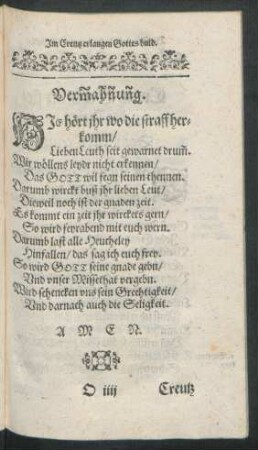 Im Creutz erlangen Gottes huld.
Vermahnung.
HIe hört jhr wo die straff her-
komm/
Lieben Leuth seit gewarnet drum̃.
Wir wöllens leydr nicht erkennen/
Das GOTT wil fegn seinen thennen.
Darumb wirckt buß jhr lieben Leut/
Dieweil noch ist der gnaden zeit.
Es kommt ein zeit jhr wirckets gern/
So wird feyrabend mit euch wern.
Darumb last alle Heucheley
Hinfallen/ das sag ich euch frey.
So wird GOTT seine gnade gebn/
Vnd vnser Missethat vergebn.
Wird schencken vns sein Grechtigkeit/
Vnd darnach auch die Seligkeit.
A M E N.
O iiij Creutz